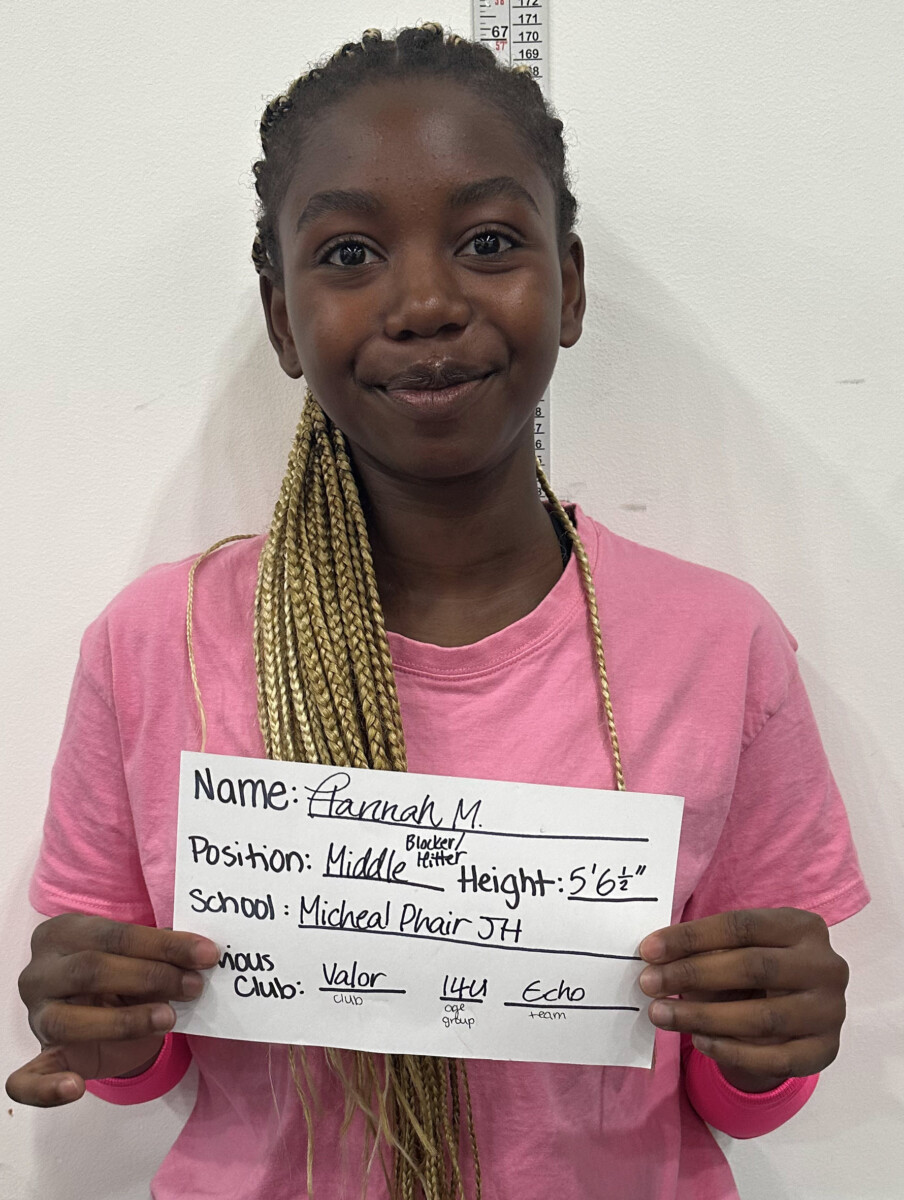 58 172
171
67 170
57 169
8
8
7
6
Name: Hannah M.
Position: Middle Blocker/ Hitter Height: 5'6½"
School: Micheal Phair JH
vious
Club: Valor 14U Echo
club age group team